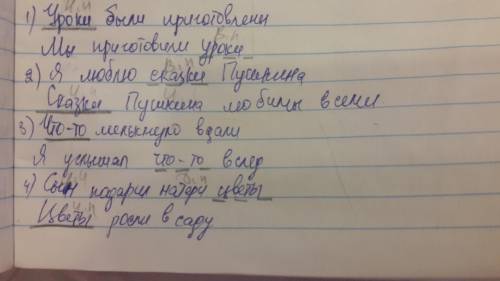 И.п
1) Уроки были приготовлены
В.п
Мы приготовили уроки
В.п
2) Я люблю сказки Пушкина
И.п
Сказки Пушкина любимы всеми
3) Что-то мелькнуло вдали
Я услышал что-то вслед
В.п
4) Сын подарил матери цветы
И.п
Цветы росли в саду